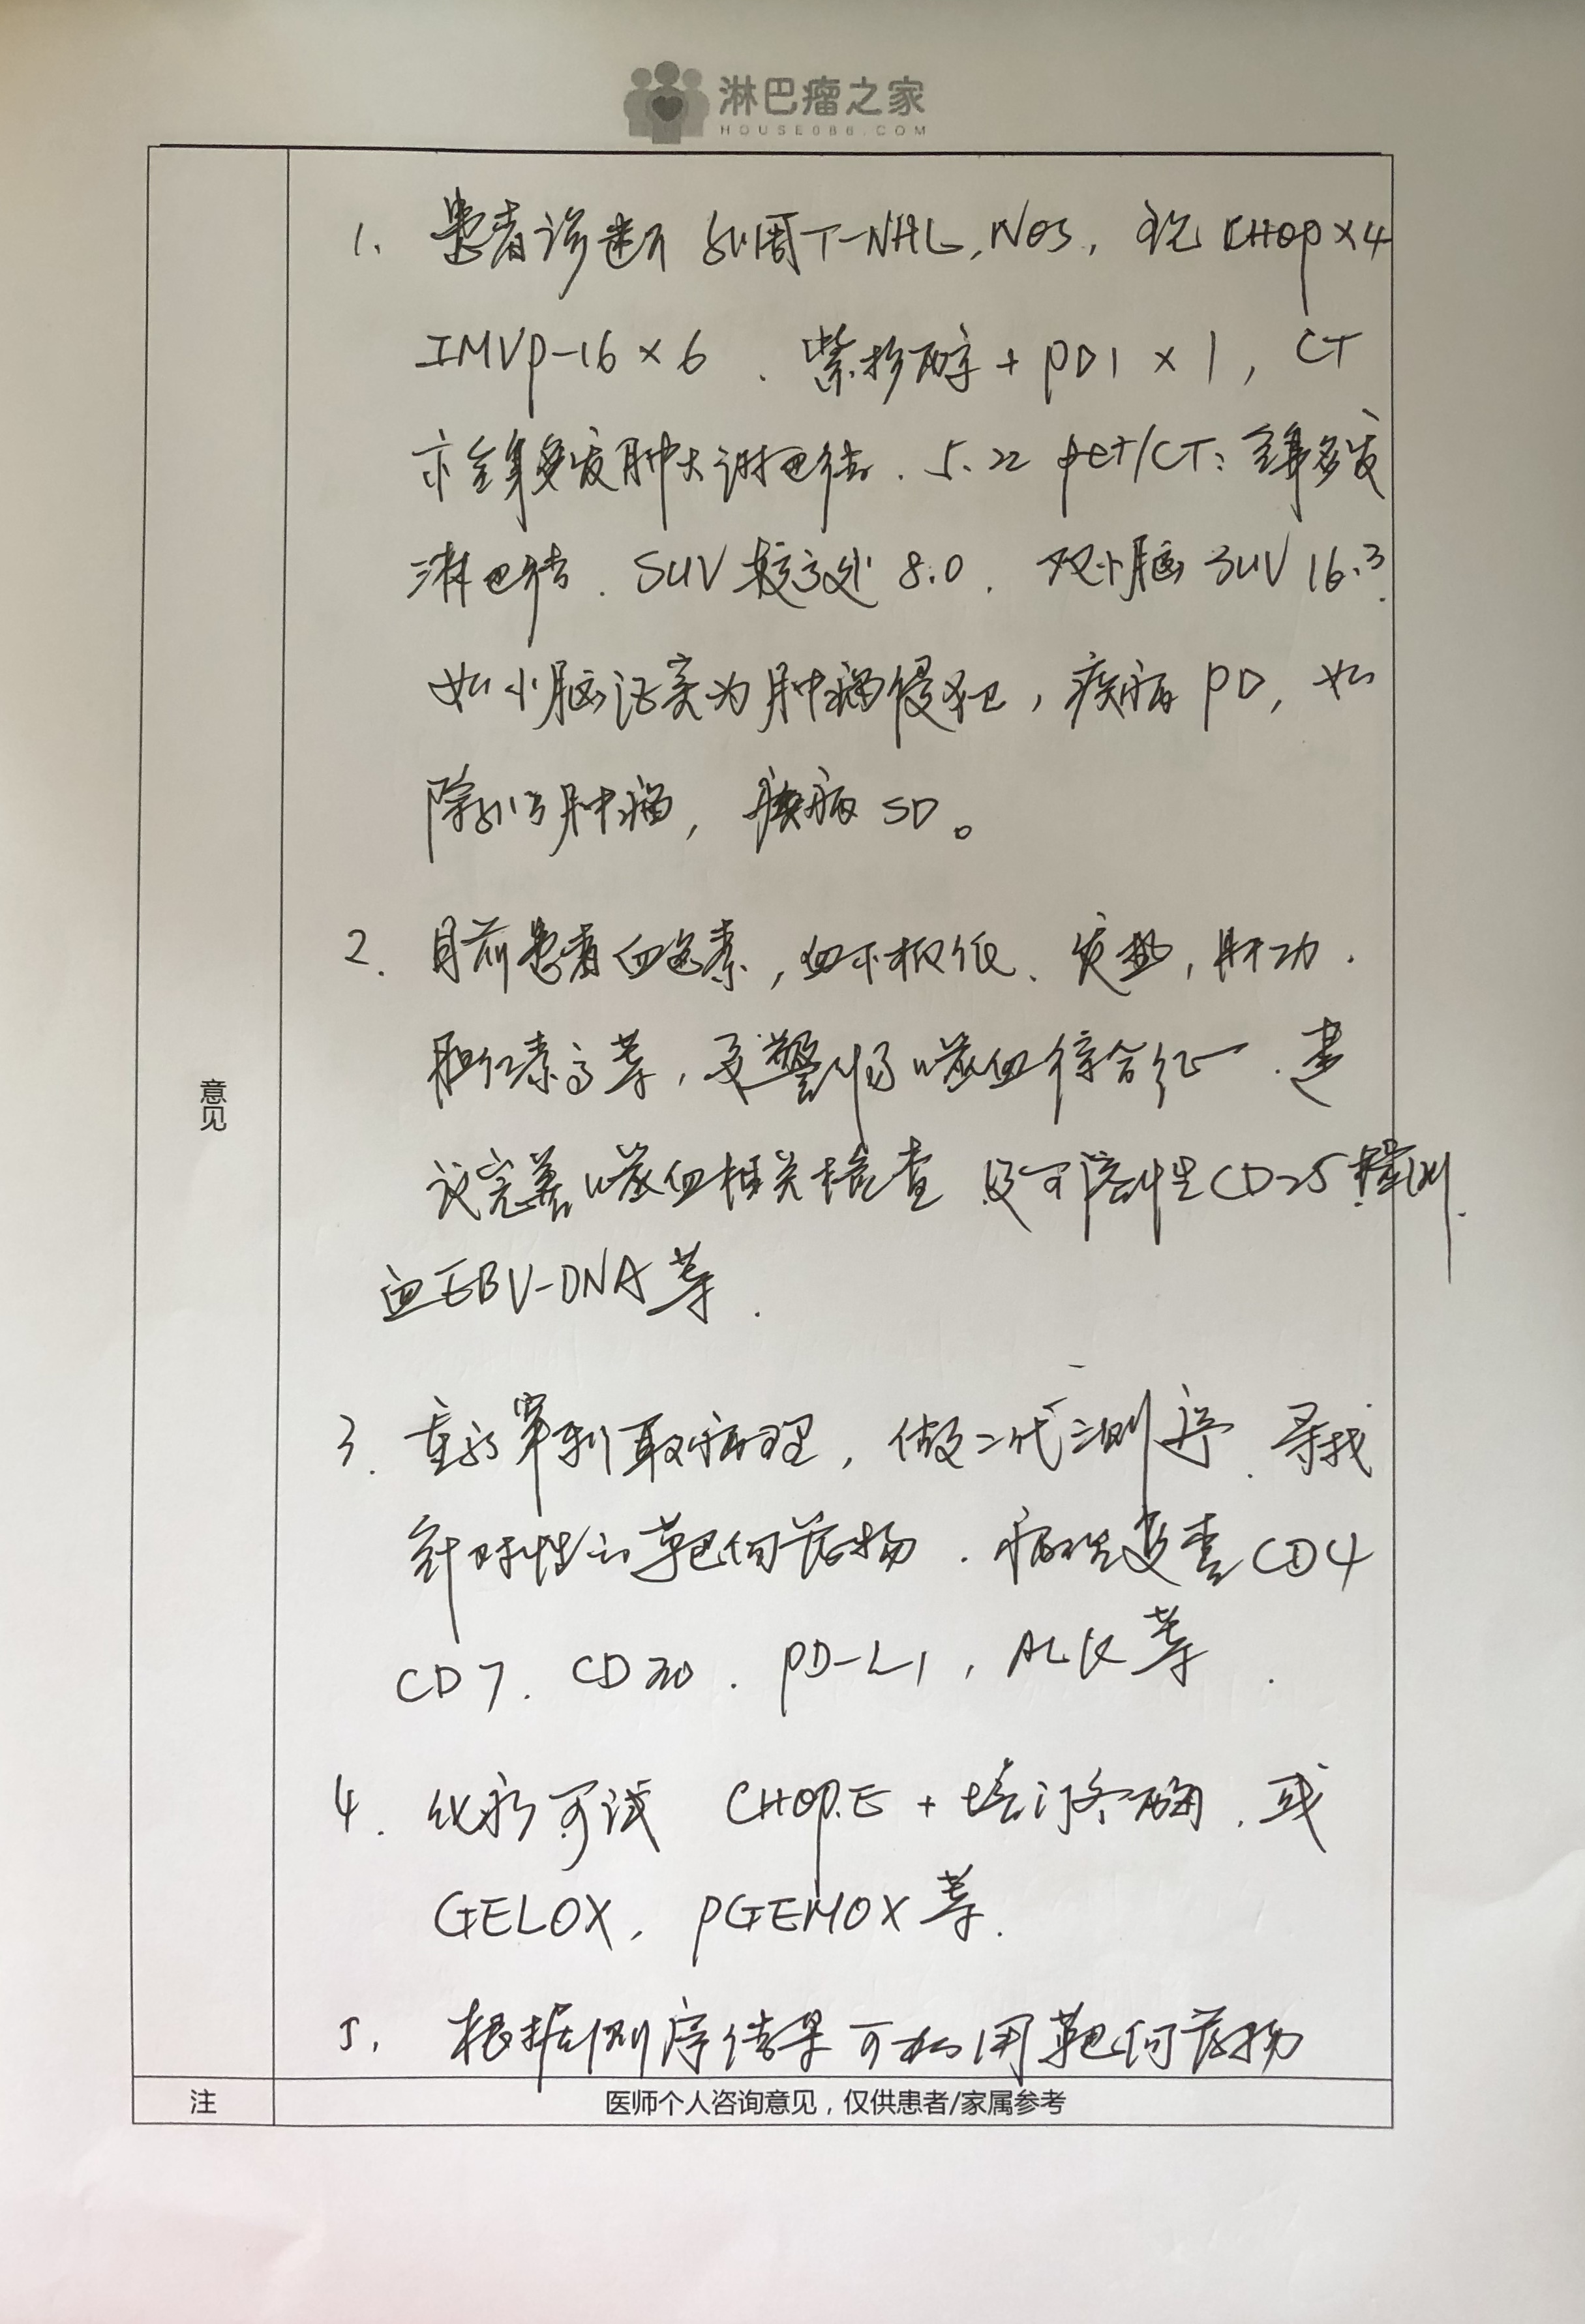 淋巴瘤之家
HOUSE086.COM
意见
1、患者诊断外周T-NHL,NOS, 已 CHOP×4
IMVP-16×6、紫杉醇+PD1×1, CT
示全身多发肿大淋巴结. 5.22 PET/CT: 全身多发
淋巴结. SUV 较高处 8.0. 双小脑 SUV 16.3.
如小脑证实为肿瘤侵犯, 疾病 PD, 如
除外肿瘤, 疾病 SD。
2. 目前患者血色素, 血小板低、发热, 肝功.
胆红素高等, 要警惕噬血综合征. 建
议完善噬血相关检查 及可溶性CD25 检测.
血EBV-DNA等.
3. 重新穿刺取病理, 做二代测序. 寻找
针对性的靶向药物. 病理复查CD4
CD7. CD30. PD-L1, ALK等.
4. 化疗可试 CHOP.E+培门冬酶. 或
GELOX, PGEMOX等.
5、根据测序结果可加用靶向药物
注
医师个人咨询意见，仅供患者/家属参考